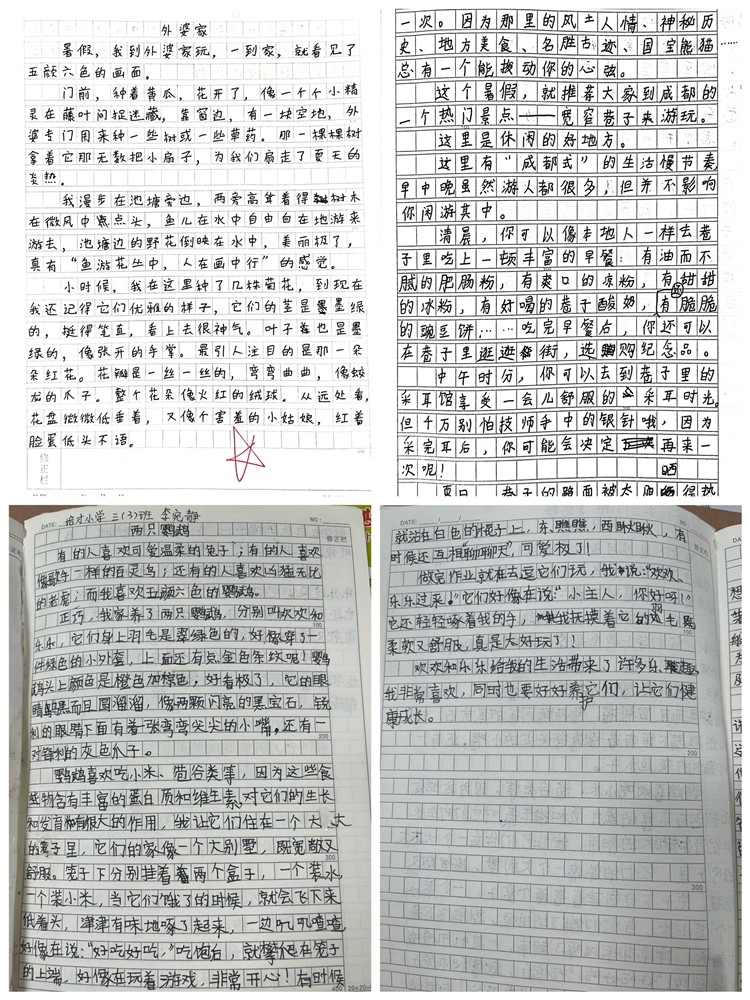 外婆家
暑假，我到外婆家玩，一到家，就看见了
五颜六色的画面。
门前，种着黄瓜，花开了，像一个个小精
灵在藤叶间捉迷藏，靠窗边，有一块空地，外
婆专门用来种一些树或一些草药。那一棵棵树
拿着它那无数把小扇子，为我们扇走了夏天的
炎热。
我漫步在池塘旁边，两旁高耸着得树木
在微风中点点头，鱼儿在水中自由自在地游来
游去，池塘边的野花倒映在水中，美丽极了，
真有“鱼游花丛中，人在画中行”的感觉。
小时候，我在这里种了几株菊花，到现在
我还记得它们优雅的样子，它们的茎是墨墨绿
的，挺得笔直，看上去很神气。叶子也是墨
绿的，像张开的手掌。最引人注目的是那一朵
朵红花。花瓣是一丝一丝的，弯弯曲曲，像蛟
龙的爪子。整个花朵像火红的绒球。从远处看，
花盘微微低垂着，又像个害羞的小姑娘，红着
脸蛋低头不语。
修正栏
一次。因为那里的风土人情、神秘历
史、地方美食、名胜古迹、国宝熊猫……
总有一个能拨动你的心弦。
这个暑假，就推荐大家到成都的
一个热门景点——宽窄巷子来游玩。
这里是休闲的好地方。
这里有“成都式”的生活慢节奏，
早中晚虽然游人都很多，但并不影响
你闲游其中。
清晨，你可以像本地人一样去巷
子里吃上一顿丰富的早餐：有油而不
腻的肥肠粉，有爽口的凉粉，有甜甜
的冰粉，有好喝的巷子酸奶，有脆脆
的豌豆饼……吃完早餐后，你还可以
在巷子里逛逛街，选购纪念品。
中午时分，你可以去到巷子里的
采耳馆享受一会儿舒服的采耳时光。
但千万别怕技师手中的银针哦，因为
采完耳后，你可能会决定再来一
次呢！
晒
夏日，巷子的路面被太阳得很热
DATE: 培才小学 三(3)班 李宛静 NO:
两只鹦鹉
修正栏
有的人喜欢可爱温柔的兔子；有的人喜欢
像歌手一样的百灵鸟；还有的人喜欢凶猛无比
的老虎；而我喜欢五颜六色的鹦鹉。
正巧，我家养了两只鹦鹉，分别叫欢欢和
乐乐，它们身上羽毛是翠绿色的，好像穿了一
100
件绿色的小外套，上面还有点金色条纹呢！鹦
鹉头上颜色是橙色加棕色，好看极了，它的眼
睛黑而且圆溜溜，像两颗闪亮的黑宝石，锐
利的眼睛下面有着一张弯弯尖尖的小嘴，还有一
对锋利的灰色爪子。
200
鹦鹉喜欢吃小米、苞谷类等，因为这些食
物含有丰富的蛋白质和维生素，对它们的生长
和发育有很大的作用，我让它们住在一个大大
的笼子里，它们的家像一个大别墅，既宽敞又
舒服。笼子下分别挂着两个盒子，一个装水，
300
一个装小米，当它们饿了的时候，就会飞下来
低着头，津津有味地啄了起来，一边叽叽喳喳，
好像在说：“好吃好吃，”吃饱后，就攀爬在笼子
的上端，好像在玩着游戏，非常开心！有时候
400
DATE: / / NO:
修正栏
就站在白色的棍子上，东瞧瞧，西瞅瞅，有
时候还互相“聊聊天”，可爱极了！
做完作业就在去逗它们玩，我说：“欢欢、
乐乐过来。”它们好像在说“小主人，你好呀！”
它还轻轻啄着我的手，我抚摸着它的羽毛
100
柔软又舒服，真是太好玩了！
欢欢和乐乐给我的生活带来了许多乐趣，
我非常喜欢，同时也要好好养护它们，让它们健
康成长。
200
300